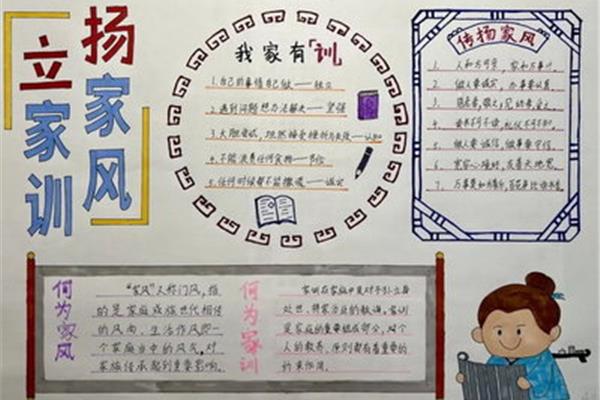 立家训
扬家风
我家有「训」
1.自己的事情自己做——独立
2.遇到问题想办法解决——坚强
3.大胆尝试，坦然接受挫折与失败——认知
4.不能浪费任何食物——节俭
5.任何时候都不能撒谎——诚实
传扬家风
1. 家和万事兴。
2. 做人要诚实，办事要认真
3. 敬之；见幼者，爱之
4. 不可不读，礼仪不可不知。
5. 做人要诚信，做事要守信。
6. 宽容心境好，友善天地宽。
7. 万事莫如为善乐，百花争比读书香。
何为家风
“家风”又称门风，指
的是家庭或族世代相传
的风尚、生活作风即一
个家庭当中的风气，对
家族传承起到重要影响。
何为家训
家训在家族中是对子孙立身
处世、持家治业的教诲，家训
是家庭的重要组成部分，对个
人的教养、原则都有着重要的
约束作用。